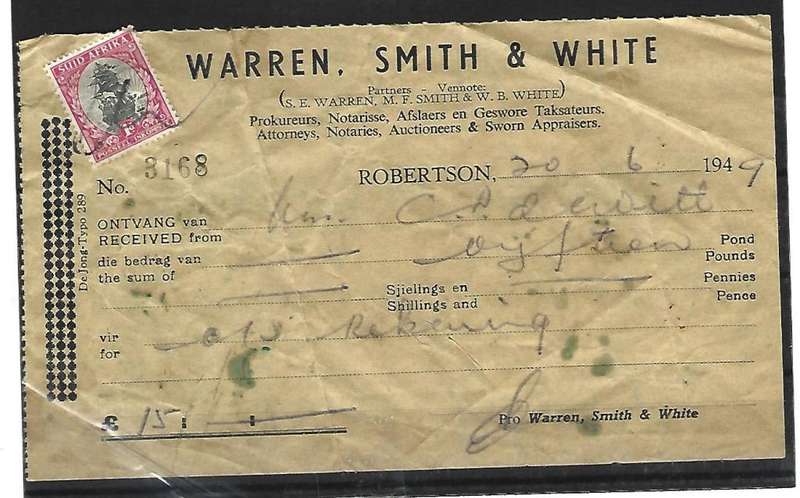 SUID AFRIKA
1D
WARREN, SMITH & WHITE
Partners - Vennote:
(S. E. WARREN, M. F. SMITH & W. B. WHITE)
Prokureurs, Notarisse, Afslaers en Geswore Taksateurs.
Attorneys, Notaries, Auctioneers & Sworn Appraisers.
No. 3168
ROBERTSON, 20 6 1949
ONTVANG van
RECEIVED from C. P. de Witt
die bedrag van Vyftien Pond
the sum of Pounds
Sjielings en Pennies
Shillings and Pence
vir
for Rekening
£ 15
Pro Warren, Smith & White
De Jong-Typo 289